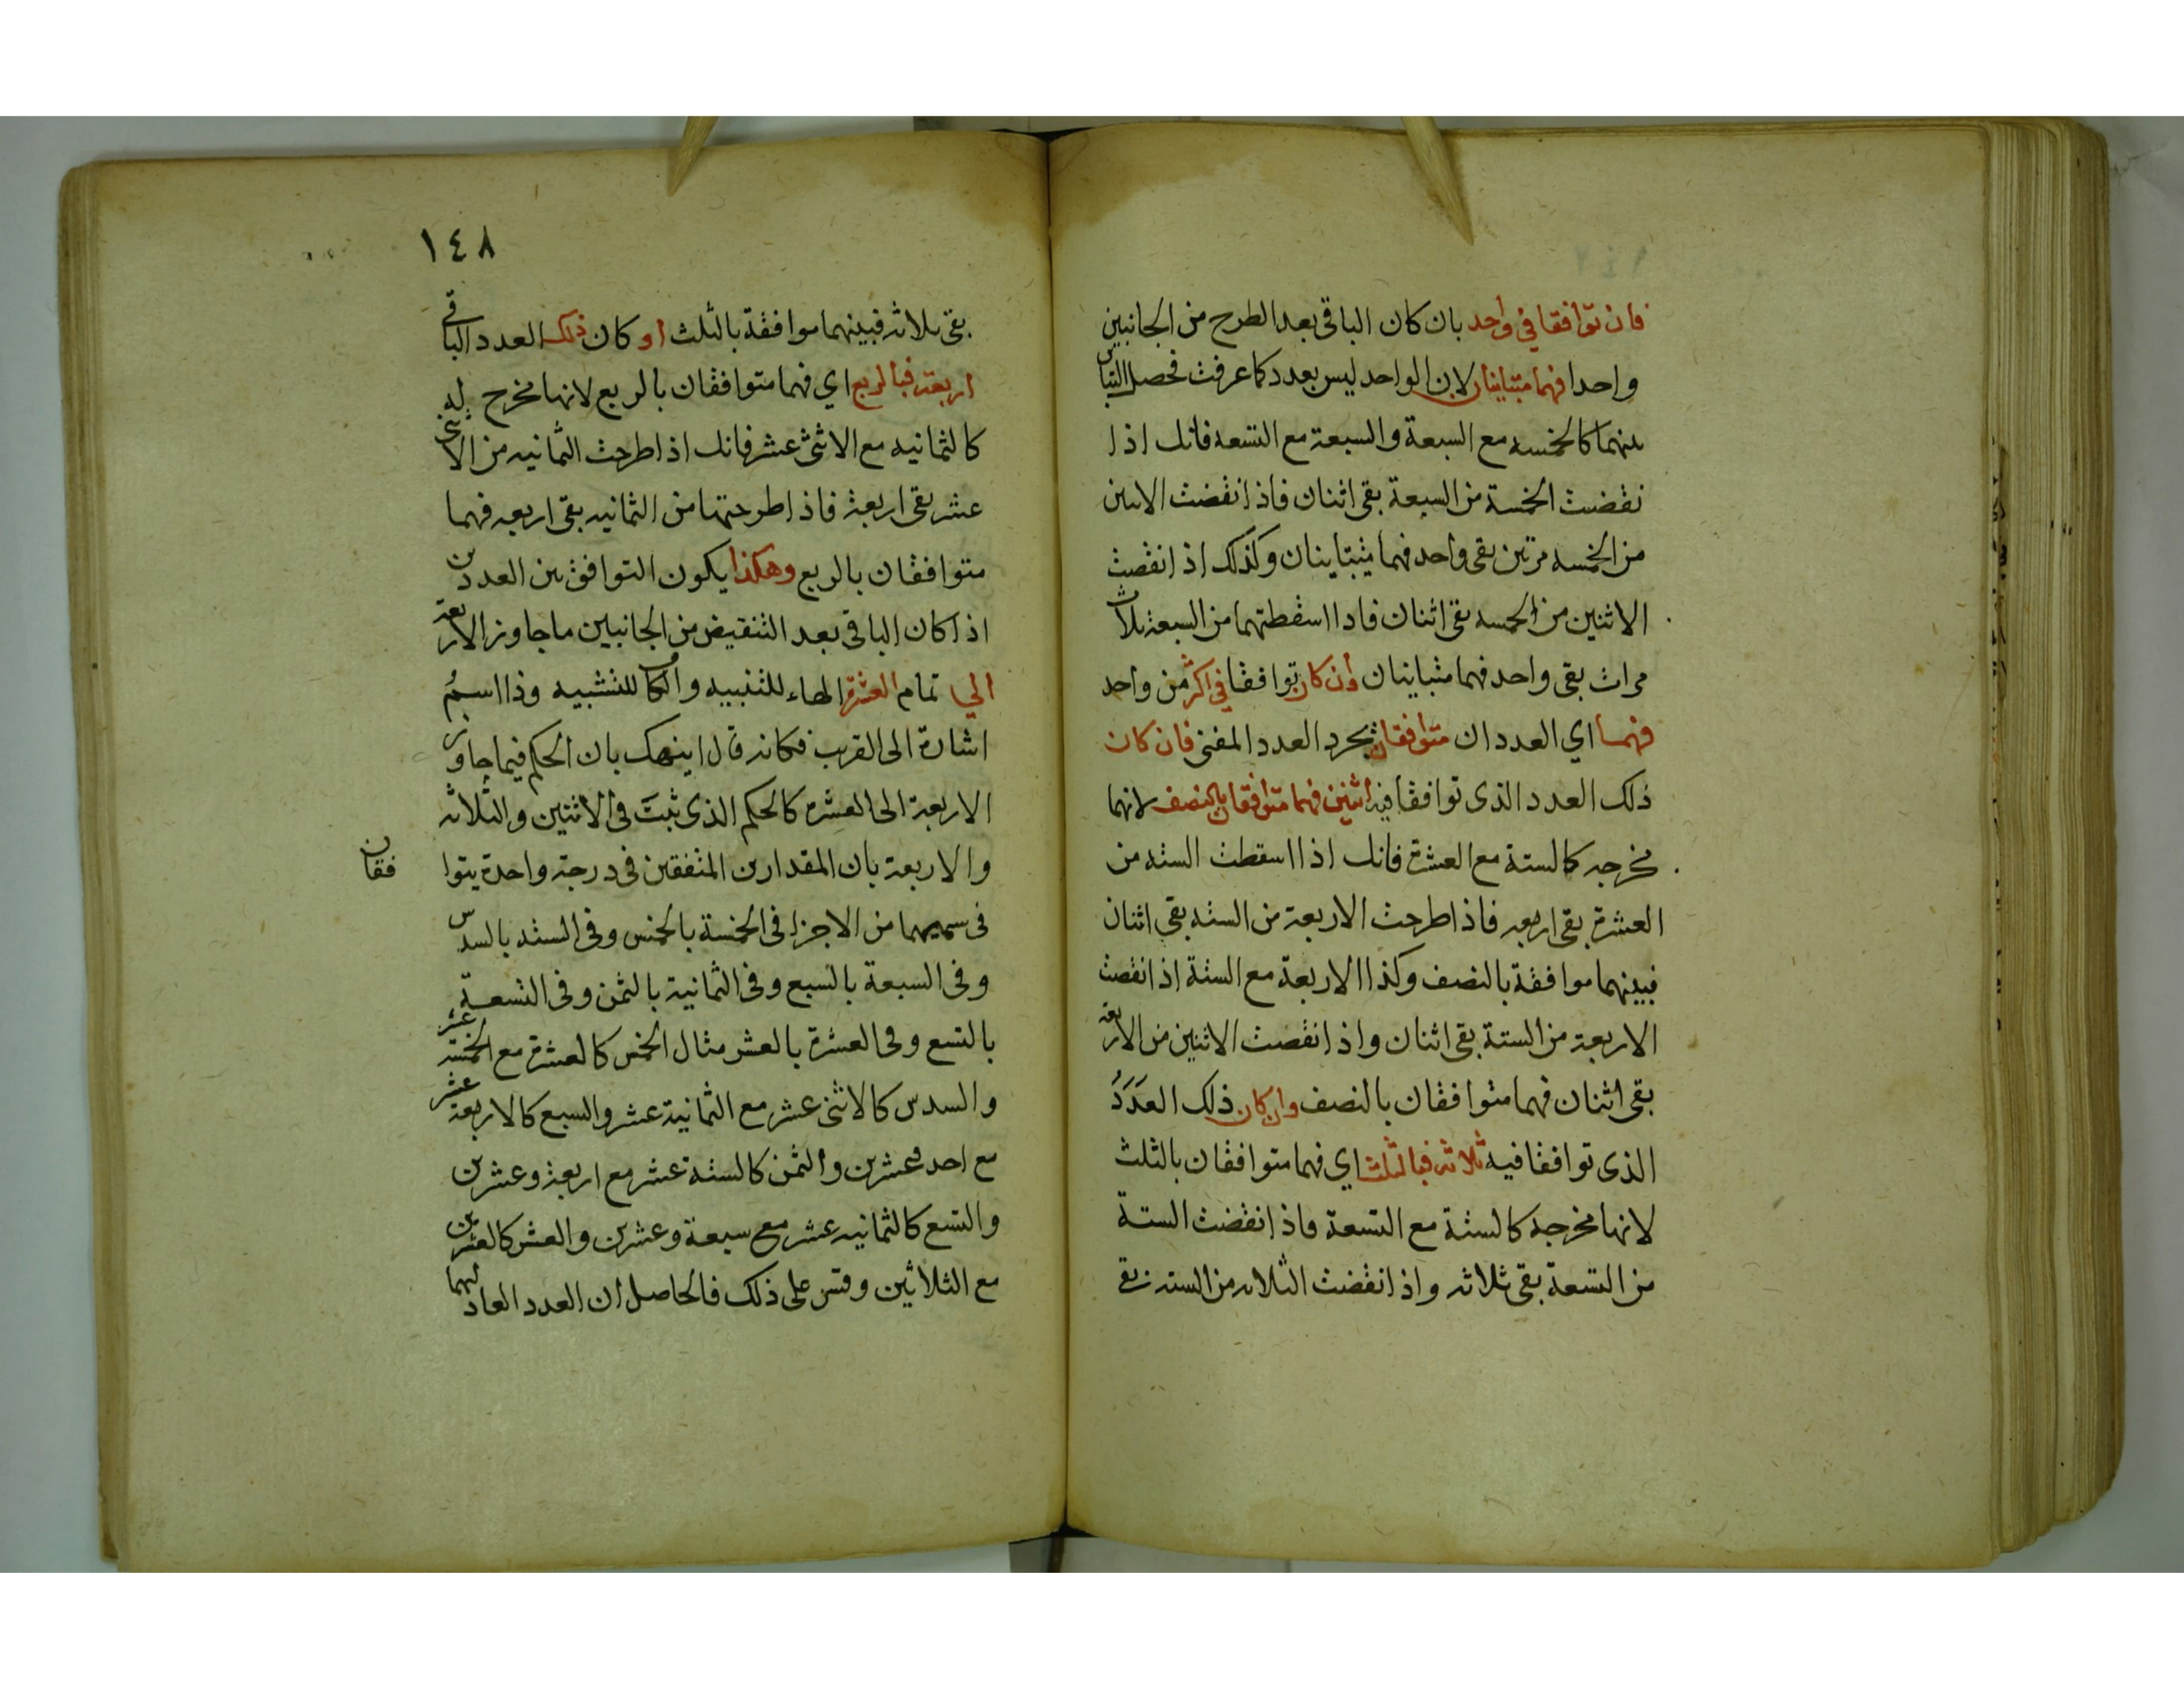 فان توافقا في واحد بان كان الباقي بعد الطرح من الجانبين
واحدا فهما متباينان لان الواحد ليس بعدد كما عرفت فحصل التباين
بينهما كالخمسه مع السبعة والسبعة مع التسعه فانك اذا
نقضت الخمسة من السبعة بقى اثنان فاذا نقضت الاثنين
من الخمسه مرتين بقى واحد فهما متباينان وكذلك اذا نقضت
الاثنين من الخمسه بقى اثنان فاذا اسقطتهما من السبعة ثلاث
مرات بقى واحد فهما متباينان وان كان توافقا في اكثر من واحد
فهما اي العددان متوافقان بجرد العدد المفنى فان كان
ذلك العدد الذى توافقا فيه اثنين فهما متوافقان بالنصف لانهما
مخرجه كالستة مع العشرة فانك اذا اسقطت الستة من
العشرة بقى اربعه فاذا طرحت الاربعة من الستة بقى اثنان
فبينهما موافقة بالنصف وكذا الاربعة مع الستة اذا نقضت
الاربعة من الستة بقى اثنان واذا نقضت الاثنين من الاربعة
بقى اثنان فهما متوافقان بالنصف وان كان ذلك العدد
الذى توافقا فيه ثلاثه فبالثلث اي فهما متوافقان بالثلث
لانها مخرجه كالستة مع التسعة فاذا نقضت الستة
من التسعة بقى ثلاثه واذا نقضت الثلاثه من الستة بقى
١٤٨
بقى ثلاثه فبينهما موافقة بالثلث او كان ذلك العدد الباقي
اربعة فبالربع اي فهما متوافقان بالربع لانها مخرج له
كالثمانيه مع الاثنى عشر فانك اذا طرحت الثمانيه من الاثنى
عشر بقى اربعة فاذا طرحتها من الثمانيه بقى اربعه فهما
متوافقان بالربع وهكذا يكون التوافق بين العددين
اذا كان الباقي بعد التنقيض من الجانبين ما جاوز الاربعة
الي تمام العشرة الهاء للتنبيه والكاف للتشبيه وذا اسمُ
اشارة الى القرب فكانه قال انبهك بان الحكم فيما جاوز
الاربعة الى العشرة كالحكم الذى ثبت في الاثنين والثلاثه
والاربعة بان المقدارين المتفقين في درجة واحدة يتوافقان
في سميهما من الاجزا في الخمسة بالخمس وفي الستة بالسدس
وفي السبعة بالسبع وفي الثمانية بالثمن وفي التسعة
بالتسع وفي العشرة بالعشر مثال الخمس كالعشرة مع الخمسة عشر
والسدس كالاثنى عشر مع الثمانية عشر والسبع كالاربعة عشر
مع احد وعشرين والثمن كالستة عشر مع اربعة وعشرين
والتسع كالثمانيه عشر مع سبعة وعشرين والعشر كالعشرين
مع الثلاثين وقس على ذلك فالحاصل ان العدد العاد لهما